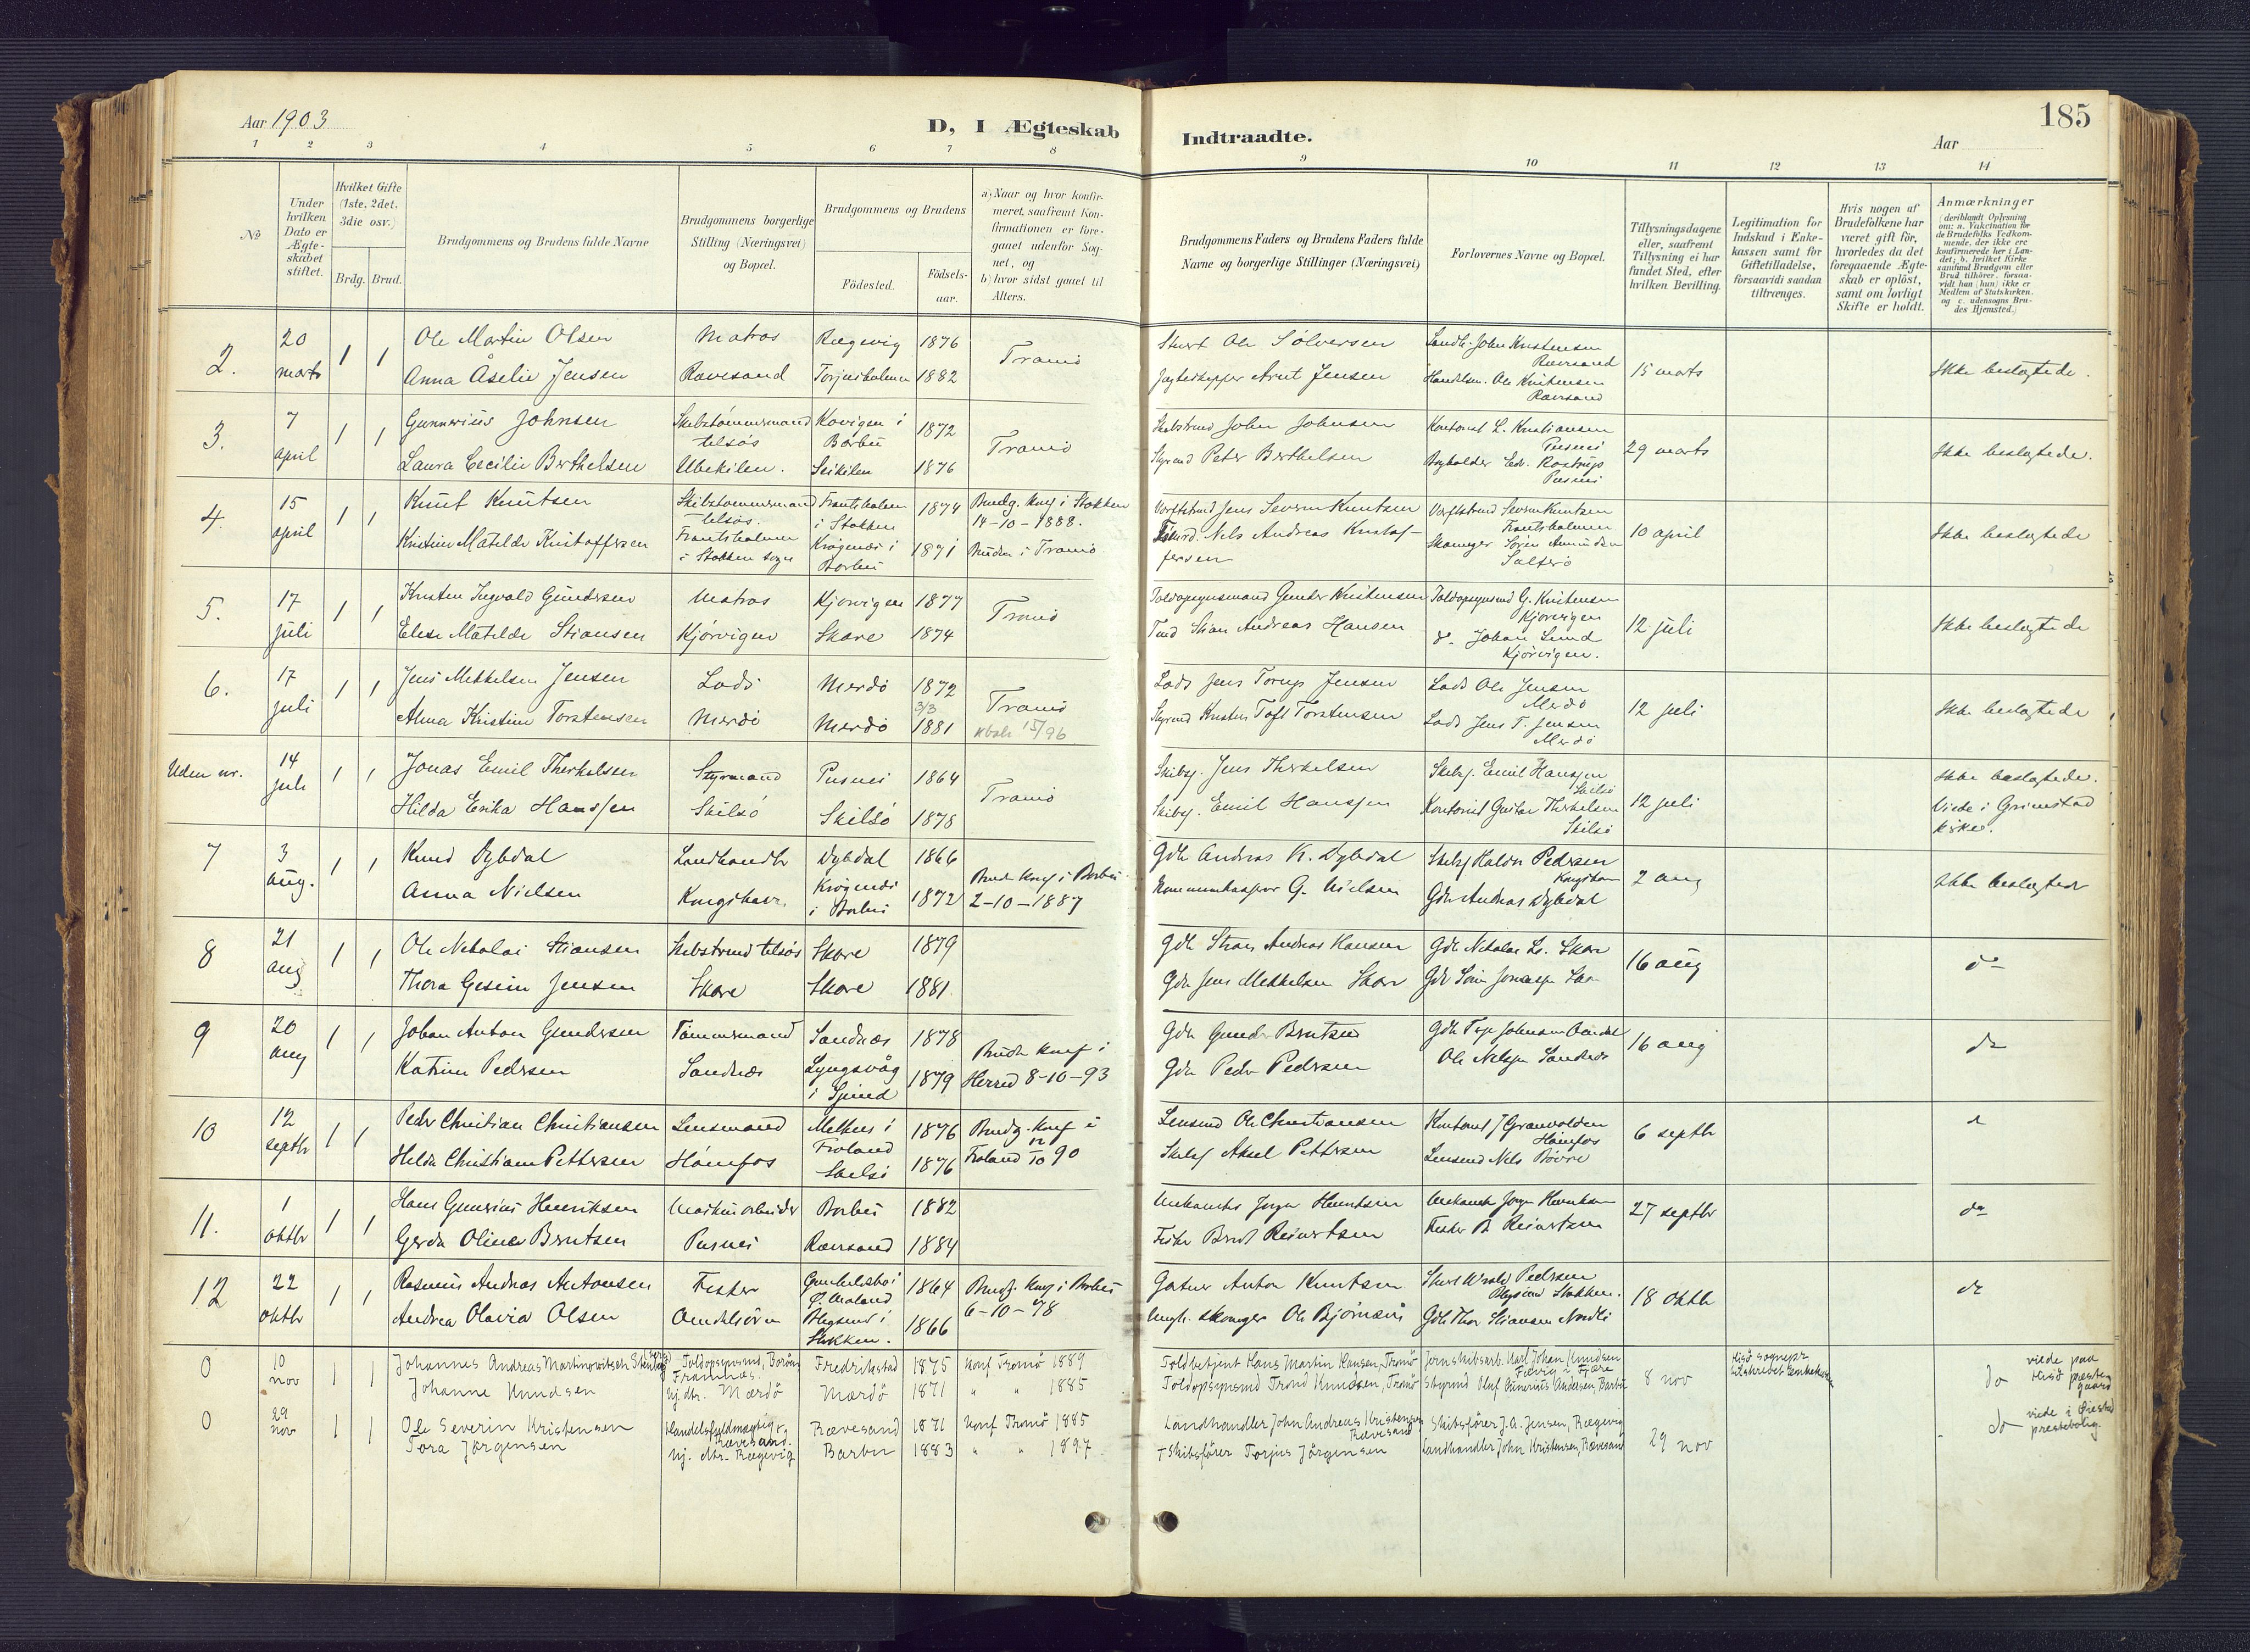 185
Aar 1903
D, I Ægteskab Indtraadte.
Aar
1 2 3 4 5 6 7 8 9 10 11 12 13 14
No
Under hvilken Dato er Ægteskabet stiftet.
Hvilket Gifte (1ste, 2det, 3die osv.)
Brdg. Brud.
Brudgommens og Brudens fulde Navne
Brudgommens borgerlige Stilling (Næringsvei) og Bopæl.
Brudgommens og Brudens
Födested.
Födselsaar.
a) Naar og hvor konfirmeret, saafremt Konfirmationen er foregaaet udenfor Sognet, og
b) hvor sidst gaaet til Alters.
Brudgommens Faders og Brudens Faders fulde Navne og borgerlige Stillinger (Næringsvei)
Forlovernes Navne og Bopæl.
Tillysningsdagene eller, saafremt Tillysning ei har fundet Sted, efter hvilken Bevilling.
Legitimation for Indskud i Enkekassen samt for Giftetilladelse, forsaavidt saadan tiltrænges.
Hvis nogen af Brudefolkene har været gift för, hvorledes da det foregaaende Ægteskab er oplöst, samt om lovligt Skifte er holdt.
Anmærkninger (deriblandt Oplysning om: a. Vakcination för de Brudefolks Vedkommende, der ikke ere konfirmerede her i Landet; b. hvilket Kirkesamfund Brudgom eller Brud tilhörer, forsaavidt han (hun) ikke er Medlem af Statskirken, og c. udensogns Brudes Hjemsted.)
2. 20 marts 1 1
Ole Martin Olsen Matros Rægevig 1876 Tromö
Anna Åselie Jensen Ravesand Torjusholmen 1882
Ole Sölversen
Arnt Jensen
Landh. John Kristensen Rævesand
Handelsm. Ole Kristensen Rævesand
15 marts Ikke beslægtede.
3. 7 april 1 1
Gunnerius Johnsen Skibstömmermand telsös Kovigen i Barbu 1872 Tromö
Laura Cecilie Berthelsen Ubekilen. 1876
John Johnsen
Peter Berthelsen
Kontorist L. Kristiansen Pusnes
29 marts Ikke beslægtede.
4. 15 april 1 1
Knut Knutsen Skibstömmermand telsös. Frantsholmen i Stokken 1874 Brudg. konf i Stokken 14-10-1888.
Kristine Matilde Kristoffersen Frantsholmen i Stokken sogn Krögenes i Barbu 1871 Bruden i Tromö
Jens Severin Knutsen
Nels Andreas Kristoffersen
Severin Knutsen Frantsholmen
Skomager Sören Amundsen Salterö
10 april Ikke beslægtede
5. 17 juli 1 1
Kristen Ingvald Gundersen Matros Kjörvigen 1877 Tromö
Elise Matilde Stiansen Kjörvigen Skare 1874
Toldopsynsmand Gunder Kristensen
Stian Andreas Hansen
Toldopsynsmd G. Kristensen Kjörvigen
Johan Lund Kjörvigen.
12 juli Ikke beslægtede
6. 17 juli 1 1
Jens Mekkelsen Jensen Lods Merdö 1872 Tromö
Alma Kristine Torstensen Merdö Merdö 3/3 1881
Lods Jens Torup Jensen
Kristen Toft Torstensen
Lods Ole Jensen Merdö
Lods Jens T. Jensen Merdö
12 juli Ikke beslægtede
Uden nr. 14 juli 1 1
Jonas Emil Therkelsen Styrmand Pusnes 1864 Tromö
Hilda Erika Hanssen Skilsö Skilsö 1878
Skibsf. Jens Therkelsen
Skibsf. Emil Hanssen
Skibsf. Emil Hanssen Skilsö
Kontorist Gustav Therkelsen Skilsö
12 juli Ikke beslægtede. Viede i Grimstad kirke.
7 3 aug. 1 1
Knud Dybdal Landhandler Dybdal 1866
Anna Nielsen Kongshavn Krögenes i Barbu 1872 Brud konf i Barbu 2-10-1887
Gdr Andreas K. Dybdal
G. Nielsen
Pedersen Kongshavn
Gdr Andreas Dybdal
2 aug Ikke beslægtede
8 21 aug 1 1
Ole Nekolai Stiansen Skibstmd telsös Skare 1879
Thora Gesine Jensen Skare Skare 1881
Gdr Stian Andreas Hansen
Gdr Jens Mekkelsen Skare
16 aug do
9 20 aug 1 1
Johan Anton Gundersen Tömmermand Sandnæs 1878
Katrine Pedersen Sandnæs Lyngsvåg i Spind 1879 Bruden konf i Herred 8-10-93
Gdr Gunder Berntsen
Gdr Peder Pedersen
Ole Nelsen Sandnæs
16 aug do
10 12 septbr 1 1
Peder Christian Christiansen Lensmand Melhus i Froland 1876 Brudg. konf i Froland 12/10 90
Helda Christiane Pettersen Hömfos Skilsö 1876
Lensmd Ole Christiansen
Skibsf Aksel Pettersen
Kontorist J Granvolden Hömfos
Lensmd Nels Bövre
6 septbr do
11. 1 oktbr 1 1
Hans Gunerius Henriksen Maskinarbeider Barbu 1882
Gerda Olinea Berntsen Pusnes Rævesand 1884
Jörgen Henriksen
Fisker Bernt Reiertsen
Fisker B Reiertsen
27 septbr do
12 22 oktbr 1 1
Rasmus Andreas Antonsen Fisker Ö. Moland 1864 Brudg. konf i Barbu 6-10-78
Andrea Olavia Olsen i Stokken. 1866
Anton Knutsen
Ole Björnsen
Pedersen Stokken.
Gdr Thor Stiansen Nordli
18 oktbr do
0 10 nov 1 1
Johannes Andreas Martinowitsch Stenberg Toldopsynsmd, Boröen Framnæs. Fredrikstad 1875 Konf Tromö 1889
Johanne Knudsen hj. dtr. Mærdö Mærdö 1871 " " 1885
Toldbetjent Hans Martin Hansen, Tromö
Toldopsynsmd Trond Knudsen, Tromö
Jernskibsarb. Karl Johan Knudsen Fævig i Fjære
Styrmd Oluf Gunerius Andersen, Barbu
8 nov
Hisö sognepr. tilskrevet Enkekassen
do viede paa Hisö præstegaard
0 29 nov 1 1
Ole Severin Kristensen Handelsfuldmægtig, Rævesand. Rævesand 1871 Konf Tromö 1885
Tora Jörgensen hj. dtr. Rægevig Barbu 1883 " " 1897
Landhandler John Andreas Kristensen, Rævesand
† Skibsförer Torjus Jörgensen
Skibsförer J. A. Jensen, Rægevig
Landhandler John Kristensen, Rævesand
29 nov
do viede i Öiestad prestebolig